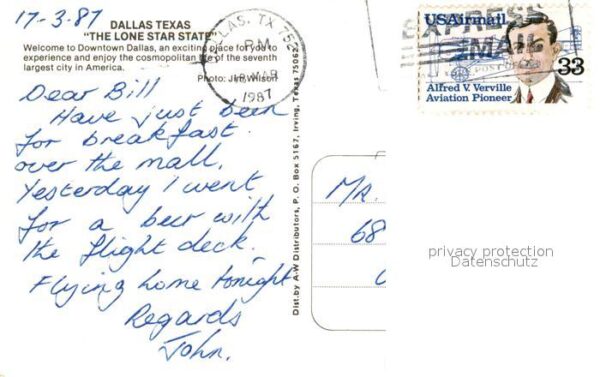 17-3-87
DALLAS TEXAS
"THE LONE STAR STATE"
Welcome to Downtown Dallas, an exciting place for you to
experience and enjoy the cosmopolitan life of the seventh
largest city in America.
Photo: Jim Wilson
Dear Bill
Have just been
for breakfast
over the mall.
Yesterday I went
for a beer with
the flight deck.
Flying home tonight
Regards
John.
DALLAS, TX 752
PM
MAR
1987
Dist. by A-W Distributors, P. O. Box 5167, Irving, Texas 75062
EXPRESS
MAIL
USAirmail
33
Alfred V. Verville
Aviation Pioneer
MR.
68
privacy protection
Datenschutz